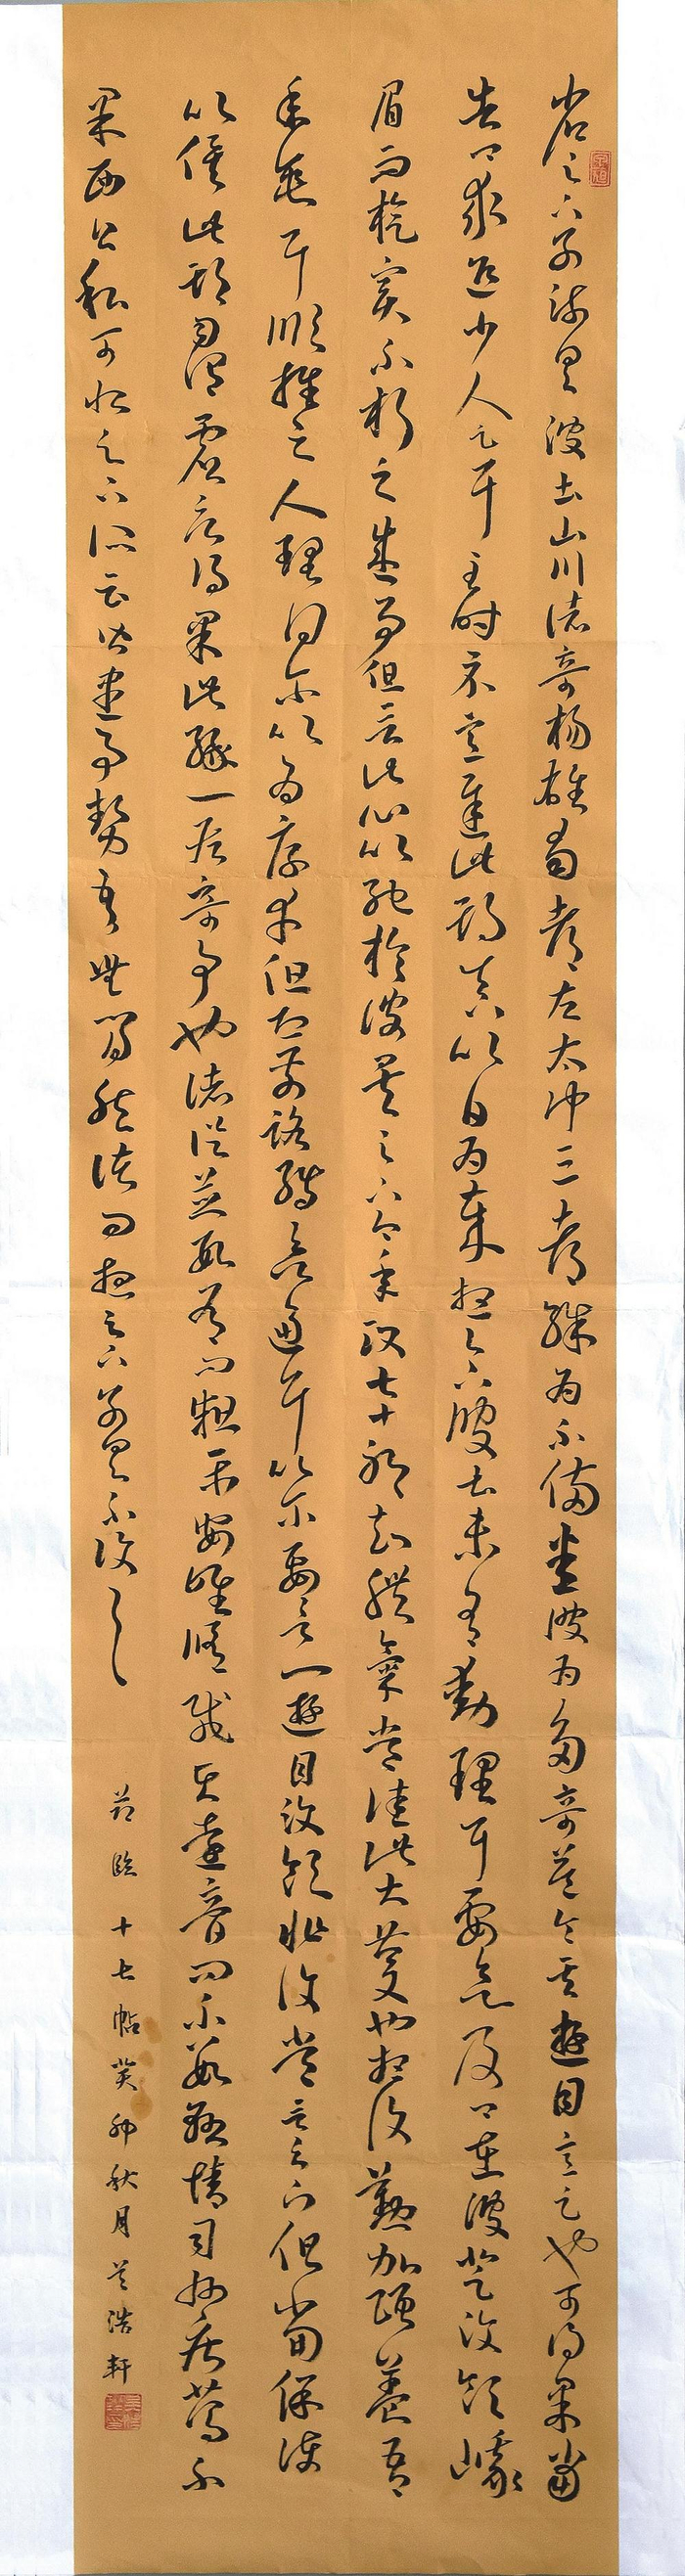 省足下別疏具彼土山川諸奇楊雄蜀都左太沖三都殊為不備悉彼為多奇益令其遊目意足也可得果當
告卿求迎少人足耳至時示意遲此期真以日為歲想足下彼土未有動理耳要欲及卿在彼登汶嶺峨
眉而旋實不朽之盛事但言此心以馳於彼矣足下今年政七十耶知體氣常佳此大慶也想復勤加頤養吾
年垂耳順推之人理得爾以為厚幸但恐前路轉欲逼耳以爾要欲一遊目汶領非復常言足下但當保護
以俟此期勿謂虛言得果此緣一段奇事也諸從並數有問粗平安唯修載在遠音問不數懸情司州疾篤不
果西公私可恨足下所云皆盡事勢吾無間然諸問想足下別具不復一一
節臨十七帖癸卯秋月吴浩軒